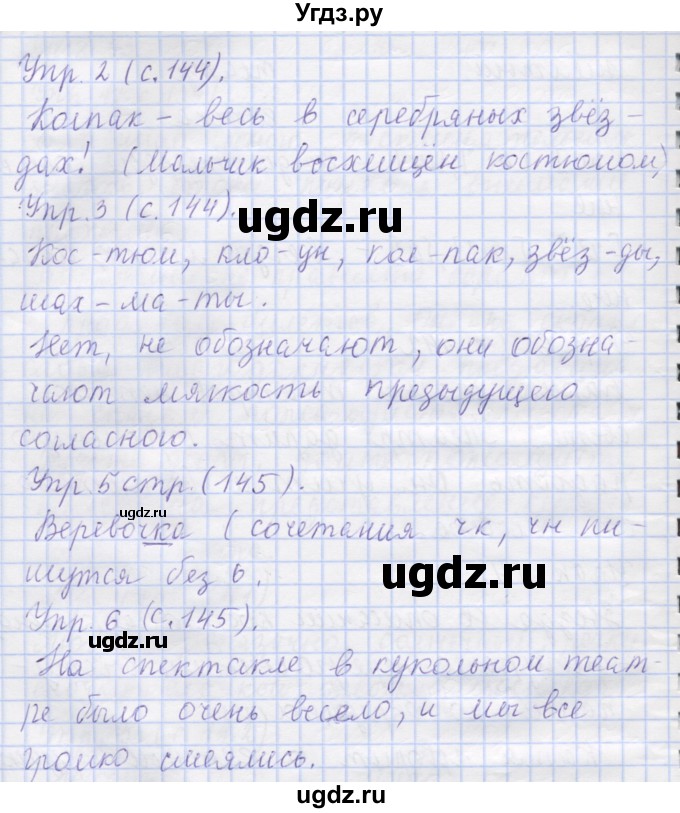 Угдз.ру
Упр. 2 (с. 144).
Колпак – весь в серебряных звёз-
дах! (Мальчик восхищён костюмом)
Упр. 3 (с. 144).
ugdz.ru
Кос-тюм, кло-ун, кол-пак, звёз-ды,
шах-ма-ты.
Нет, не обозначают, они обозна-
чают мягкость предыдущего
согласного.
Упр 5 стр. (145).
Веревочка (сочетания чк, чн пи-
шутся без ь.
ugdz.ru
Упр. 6 (с. 145).
ugdz.ru
На спектакле в кукольном теат-
ре было очень весело, и мы все
громко смеялись.
ugdz.ru